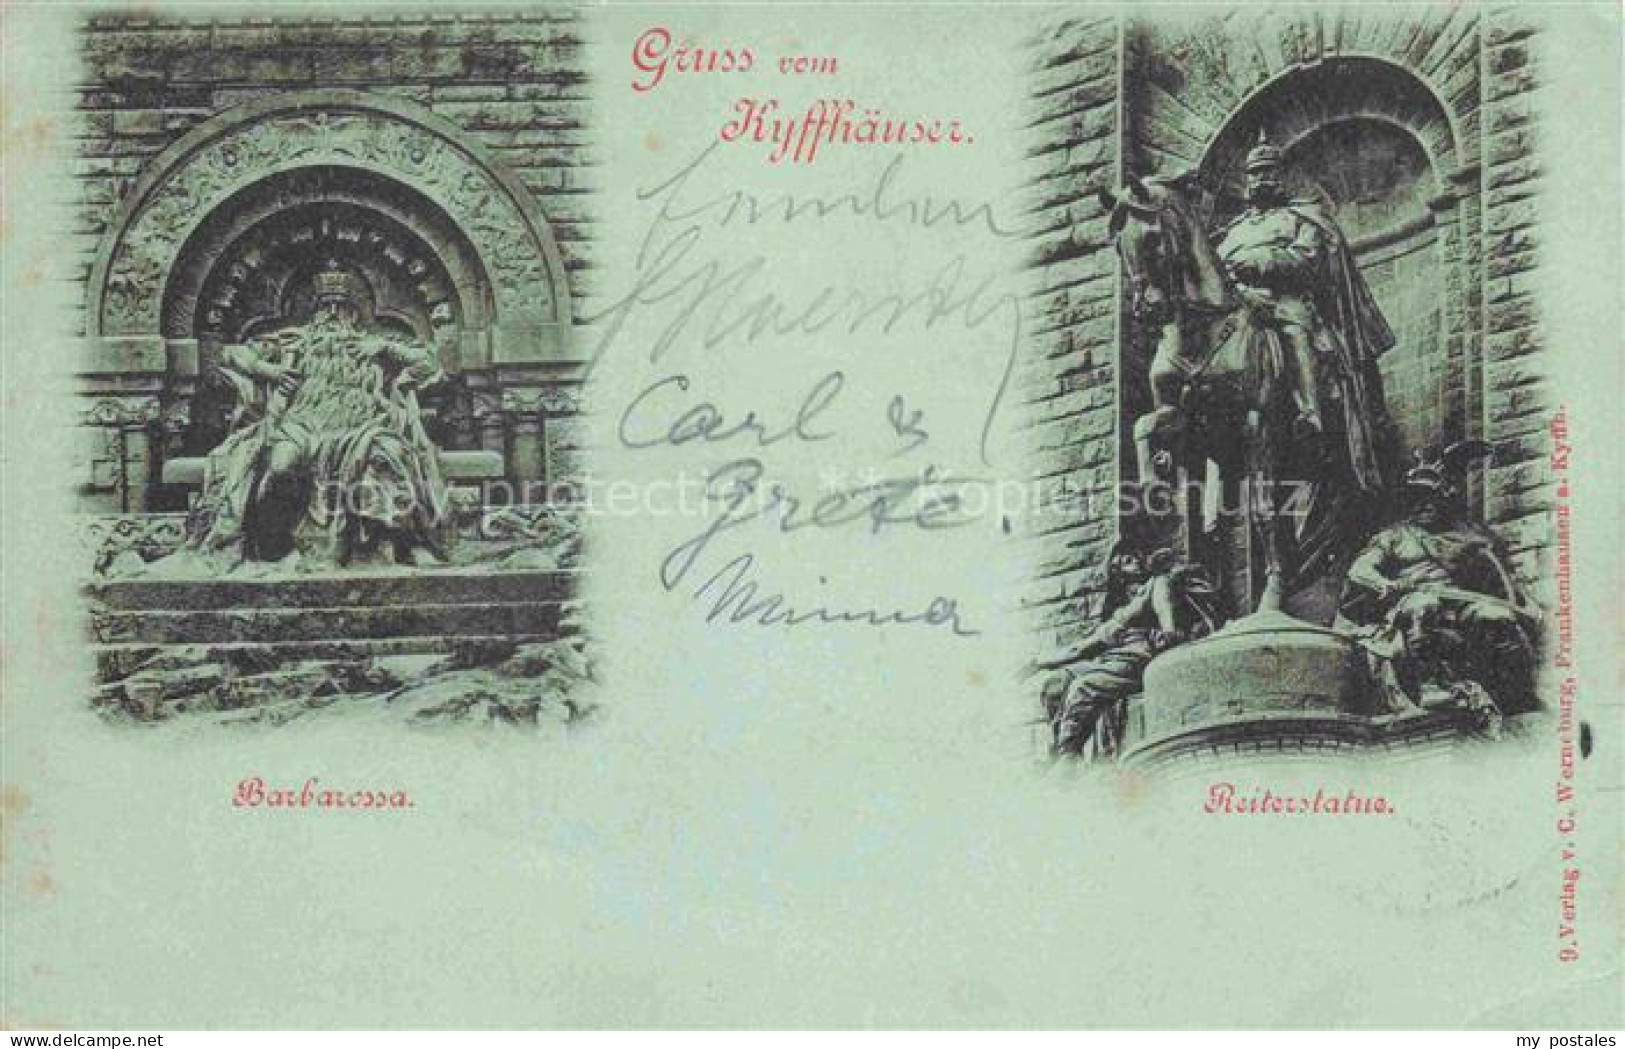 Gruss vom
Kyffhäuser.
Carl &
Grete.
Minna
copy protection * * * Kopierschutz
Barbarossa.
Reiterstatue.
9. Verlag v. C. Werneburg, Frankenhausen a. Kyffh.
www.delcampe.net
my_postales